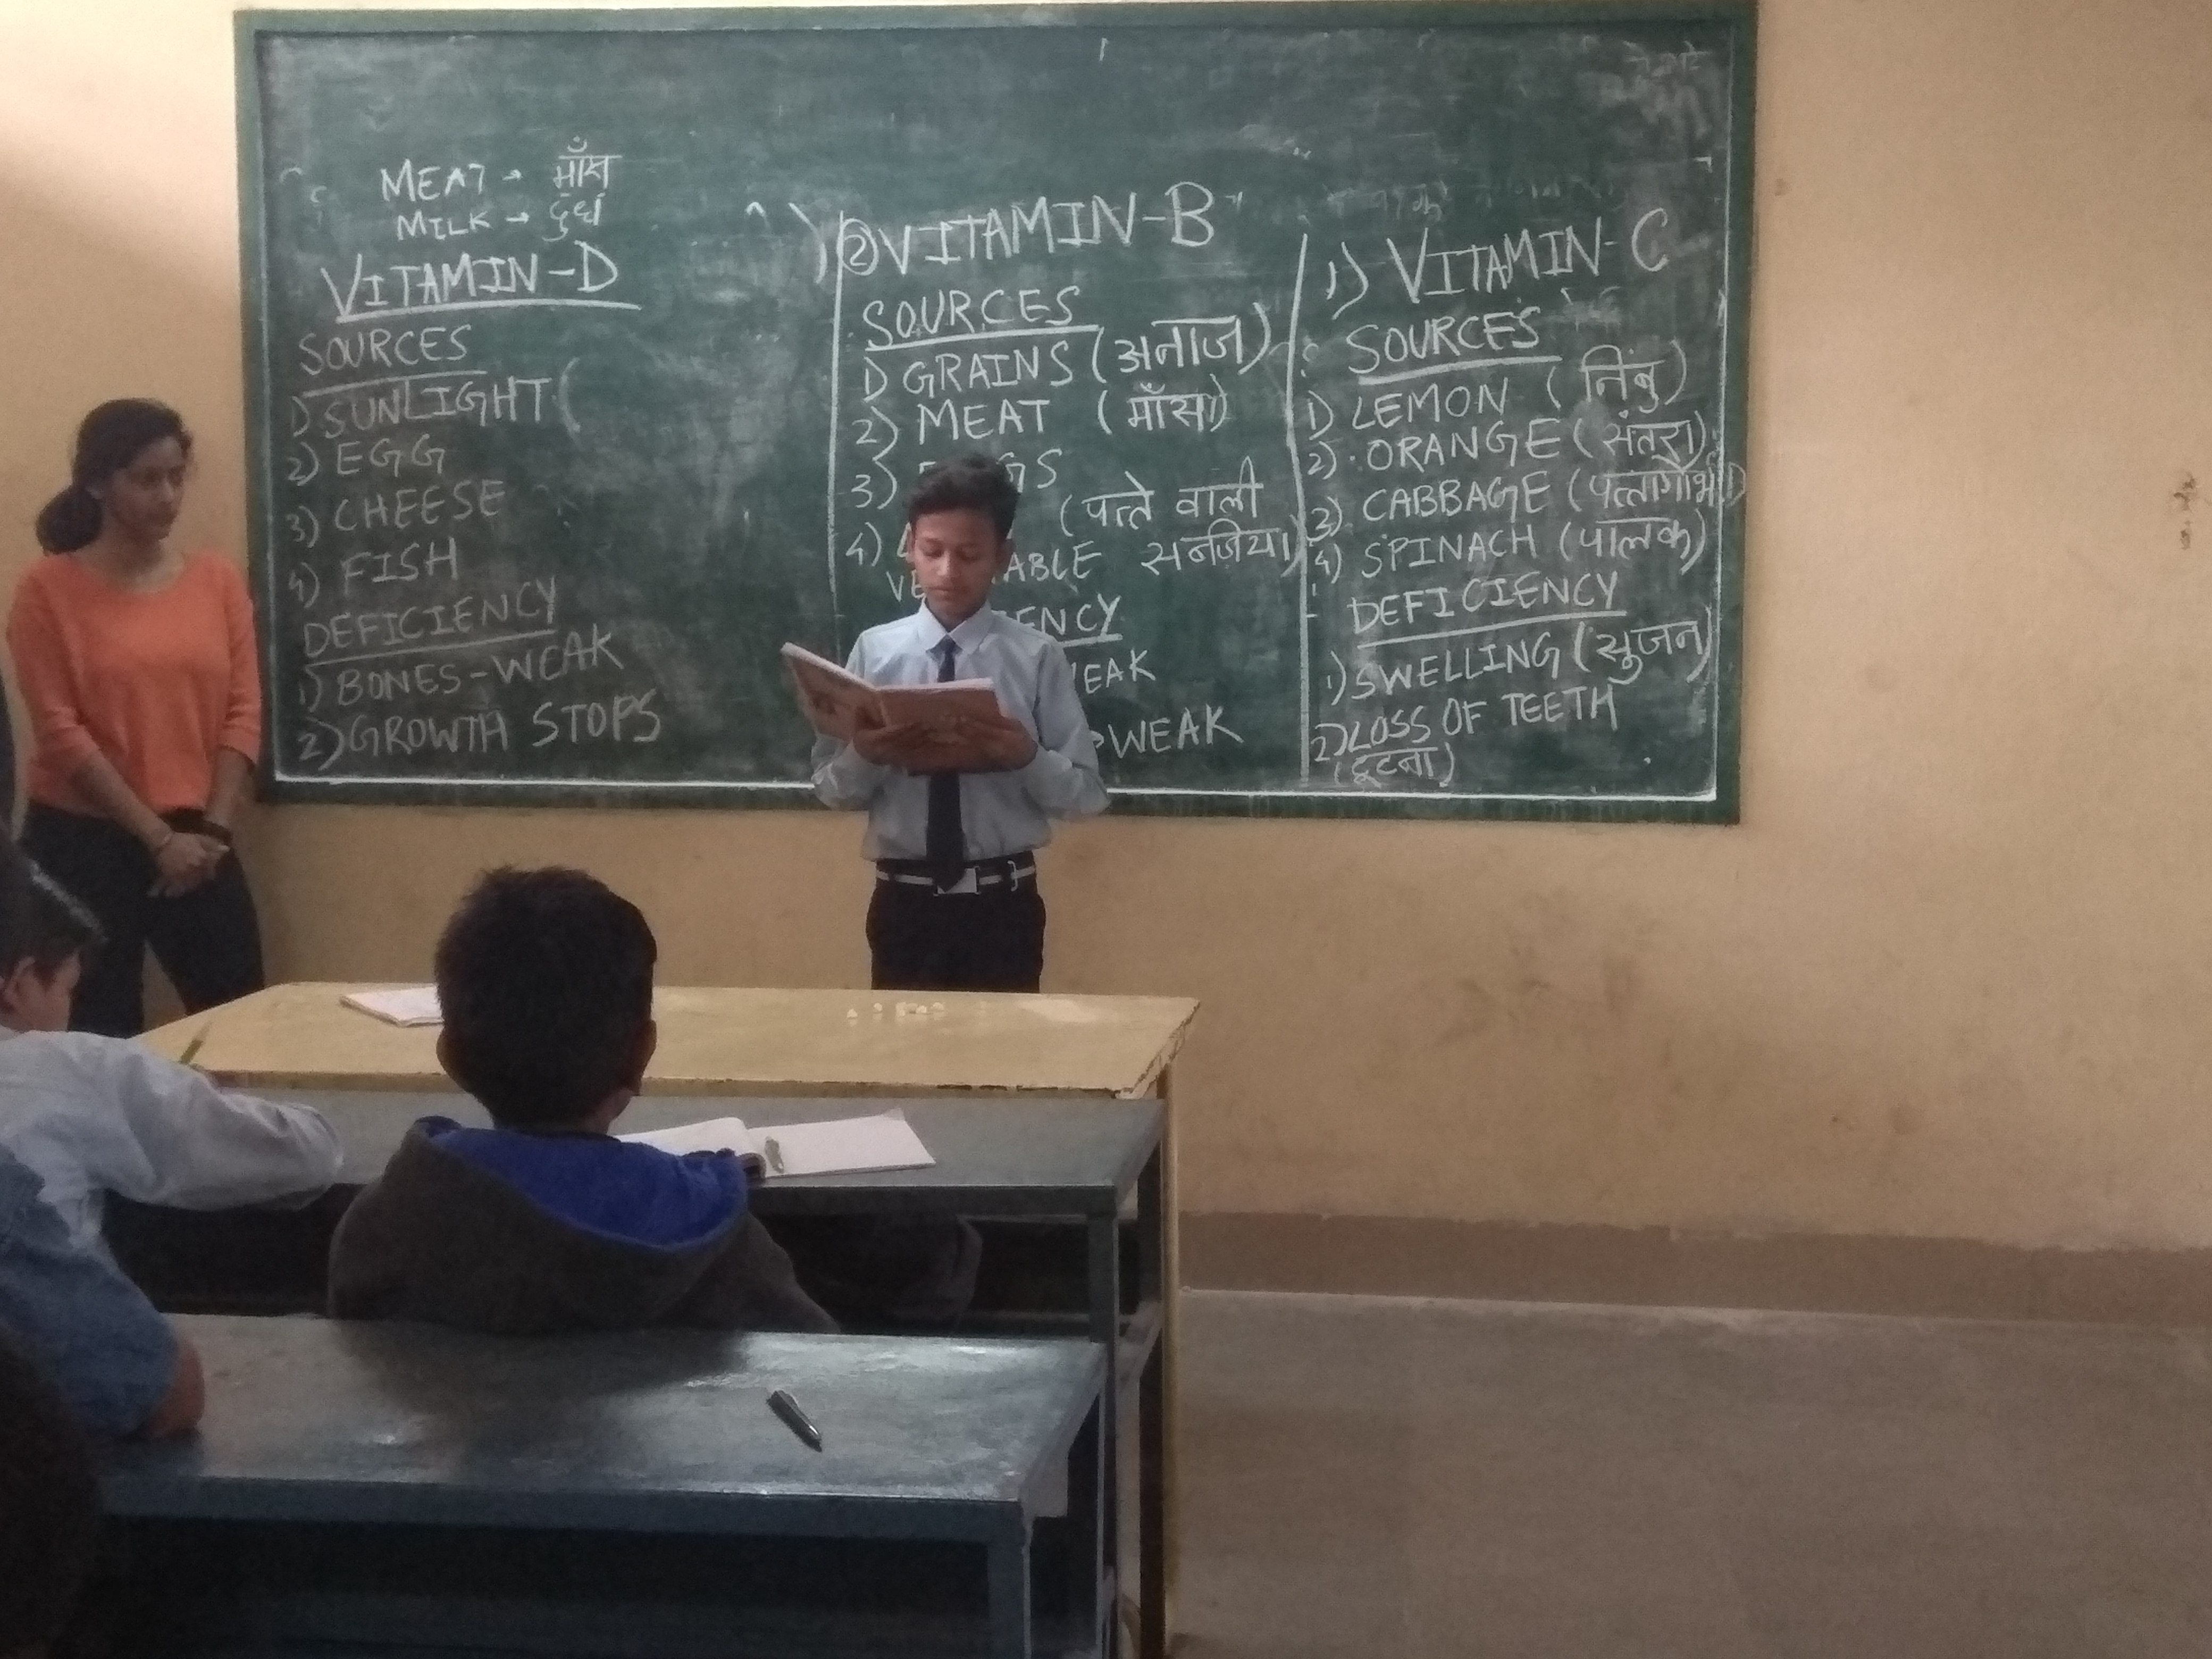 MEAT → माँस
MILK → दुध
VITAMIN-D
SOURCES
1) SUNLIGHT (
2) EGG
3) CHEESE
4) FISH
DEFICIENCY
1) BONES-WEAK
2) GROWTH STOPS
② VITAMIN-B
SOURCES
1) GRAINS (अनाज)
2) MEAT (माँस)
3) GS
4) (पत्ते वाली
ABLE सब्जिया)
ENCY
EAK
WEAK
1) VITAMIN-C
SOURCES
1) LEMON (निंबु)
2) ORANGE (संतरा)
3) CABBAGE (पत्तागोभी)
4) SPINACH (पालक)
DEFICIENCY
1) SWELLING (सुजन)
2) LOSS OF TEETH
(टूटना)